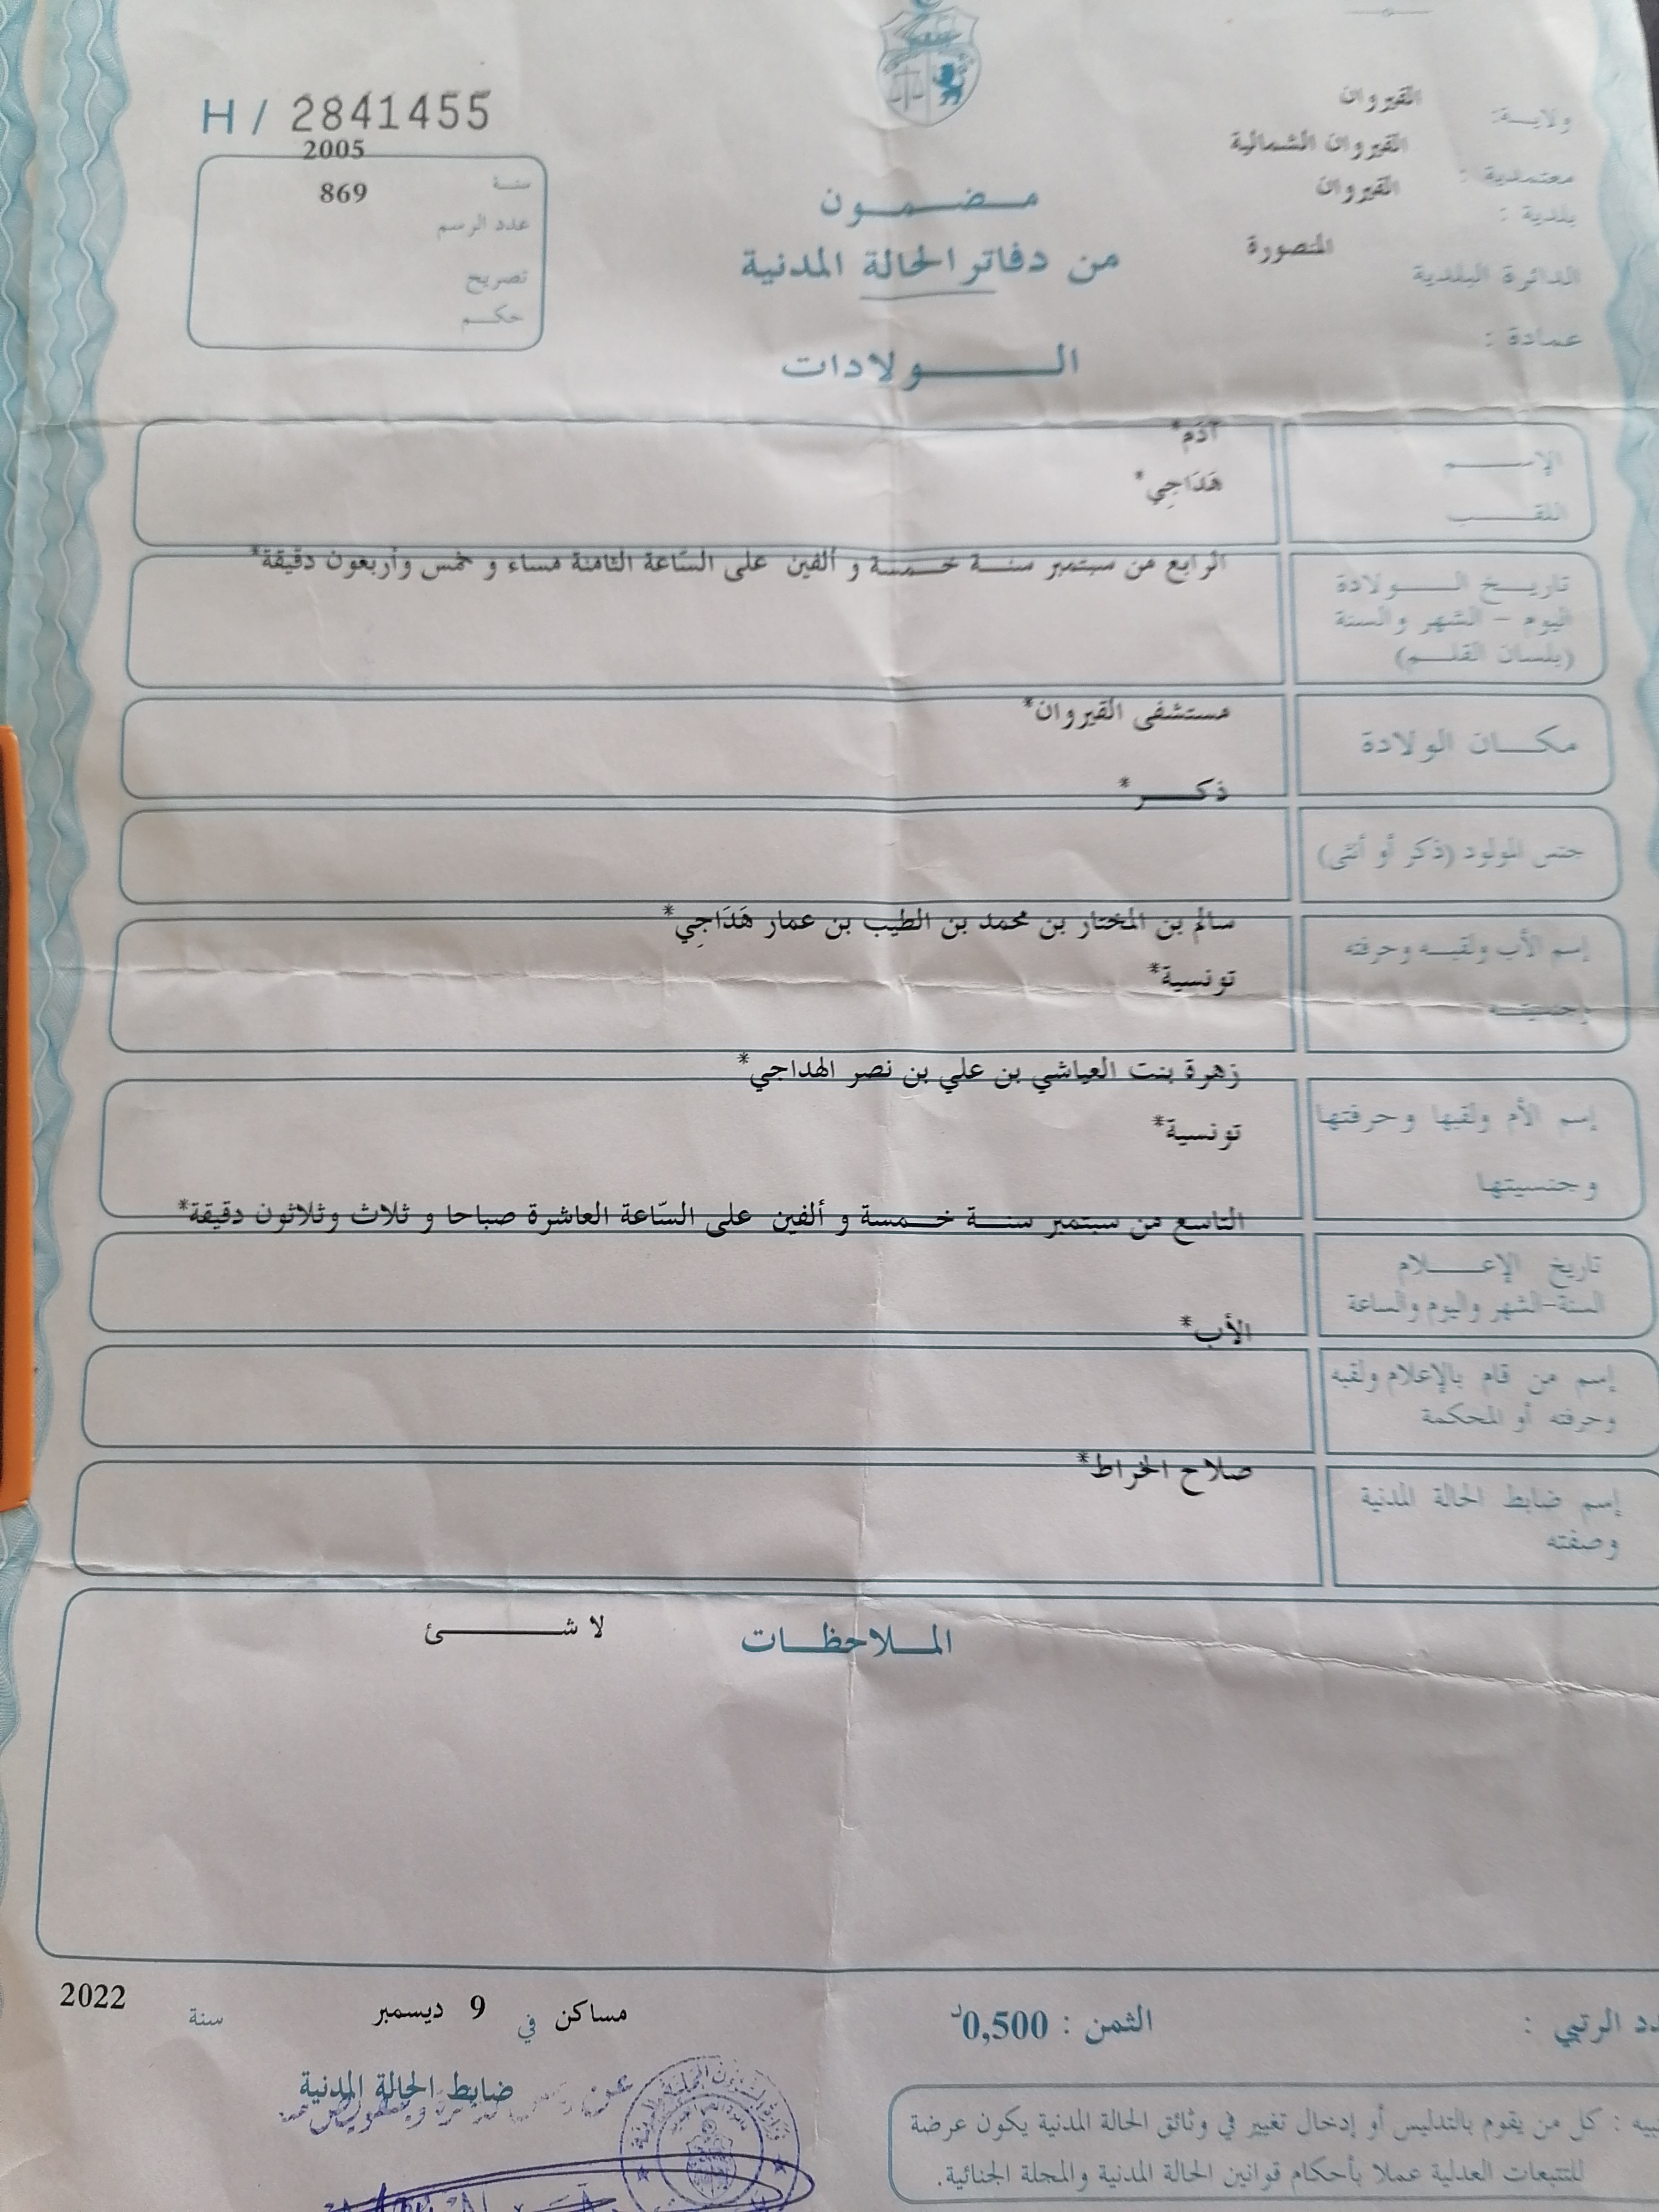 H / 2841455
2005
سنة
869
عدد الرسم
تصريح
حكم
ولاية: القيروان
معتمدية : القيروان الشمالية
بلدية : القيروان
الدائرة البلدية المنصورة
عمادة :
مضمون
من دفاتر الحالة المدنية
الولادات
الإسم آدم*
اللقب هَدَاجِي*
تاريخ الولادة
اليوم - الشهر والسنة
(بلسان القلم)
الرابع من سبتمبر سنة خمسة و ألفين على السّاعة الثامنة مساء و خمس وأربعون دقيقة*
مكان الولادة مستشفى القيروان*
جنس المولود (ذكر أو أنثى) ذكر*
إسم الأب ولقبه وحرفته سالم بن المختار بن محمد بن الطيب بن عمار هَدَاجِي*
وجنسيته تونسية*
إسم الأم ولقبها وحرفتها زهرة بنت العياشي بن علي بن نصر الهداجي*
وجنسيتها تونسية*
تاريخ الإعلام
السنة-الشهر واليوم والساعة
التاسع من سبتمبر سنة خمسة و ألفين على السّاعة العاشرة صباحا و ثلاث وثلاثون دقيقة*
إسم من قام بالإعلام ولقبه
وحرفته أو المحكمة
الأب*
إسم ضابط الحالة المدنية
وصفته
صلاح الخراط*
الملاحظات لا شئ
مساكن في 9 ديسمبر سنة 2022
الرتبي :
الثمن : 0,500د
ضابط الحالة المدنية
: كل من يقوم بالتدليس أو إدخال تغيير في وثائق الحالة المدنية يكون عرضة
للتتبعات العدلية عملا بأحكام قوانين الحالة المدنية والمجلة الجنائية.